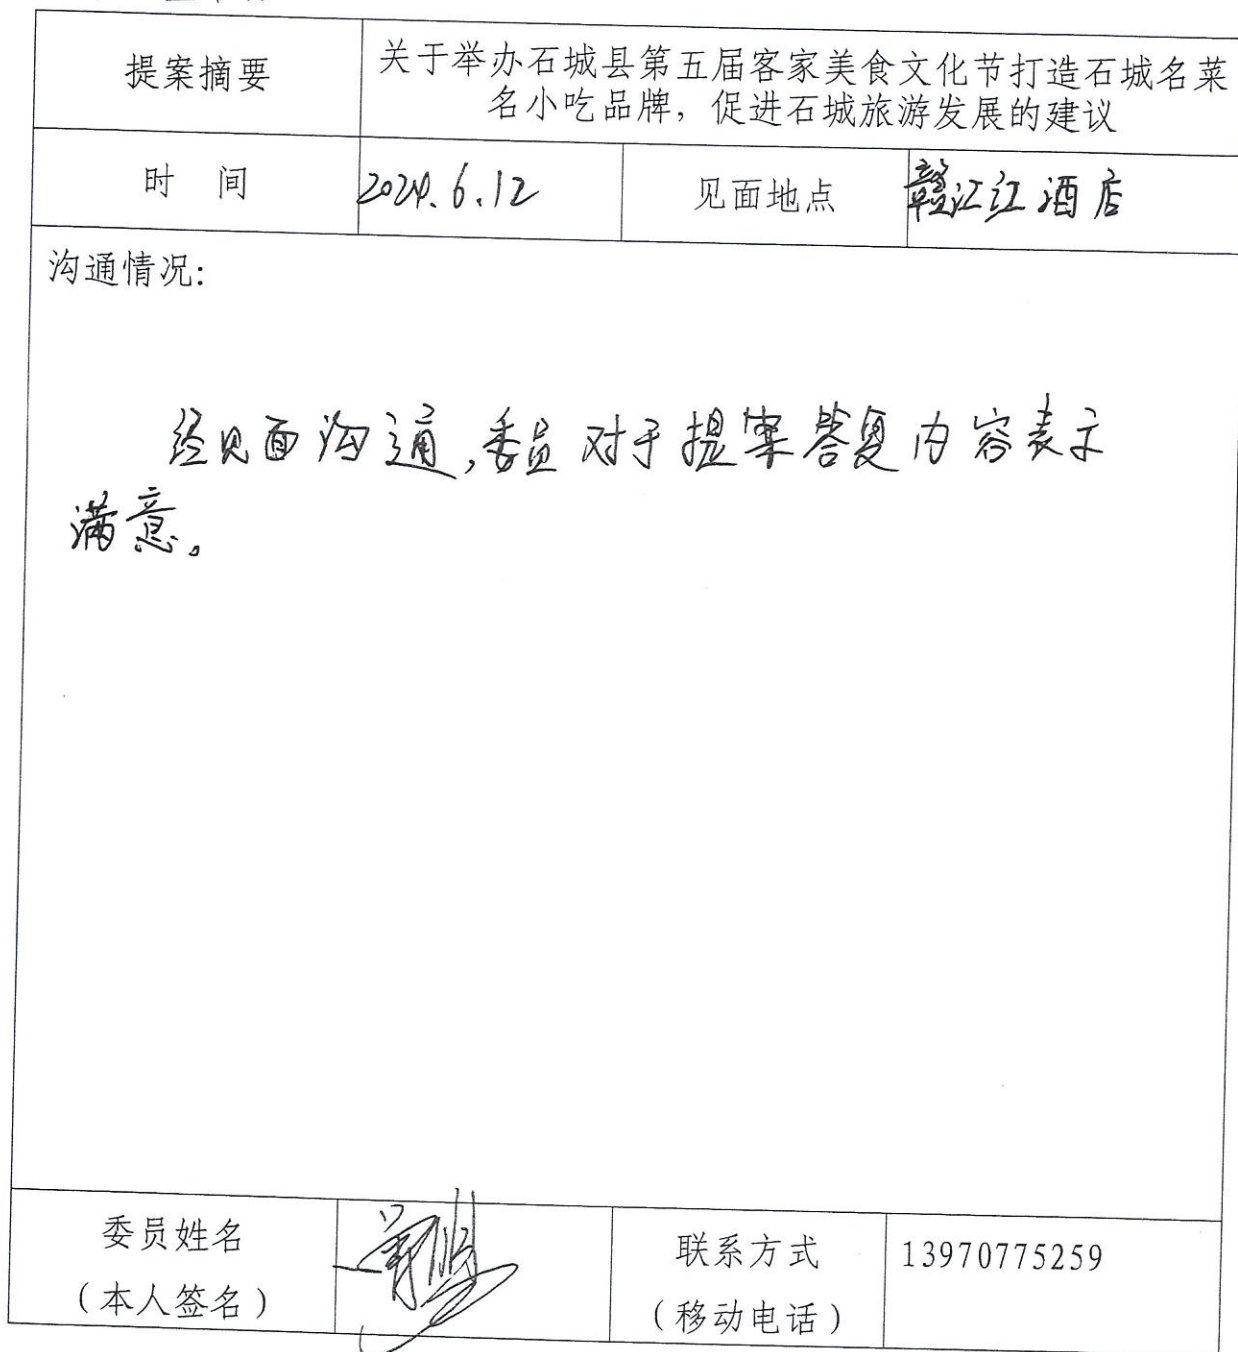 提案摘要
关于举办石城县第五届客家美食文化节打造石城名菜
名小吃品牌，促进石城旅游发展的建议
时 间
2024.6.12
见面地点
赣江江酒店
沟通情况:
经见面沟通,委员对于提案答复内容表示
满意。
委员姓名
（本人签名）
联系方式
（移动电话）
13970775259